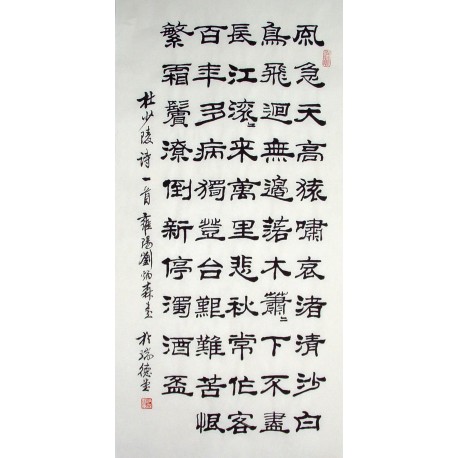 風急天高猿嘯哀渚清沙白
鳥飛迴無邊落木蕭〻下不盡
長江滾〻来萬里悲秋常作客
百年多病獨登台艱難苦恨
繁霜鬢潦倒新停濁酒盃
杜少陵诗一首 雍陽劉炳森書 於瑞德堂